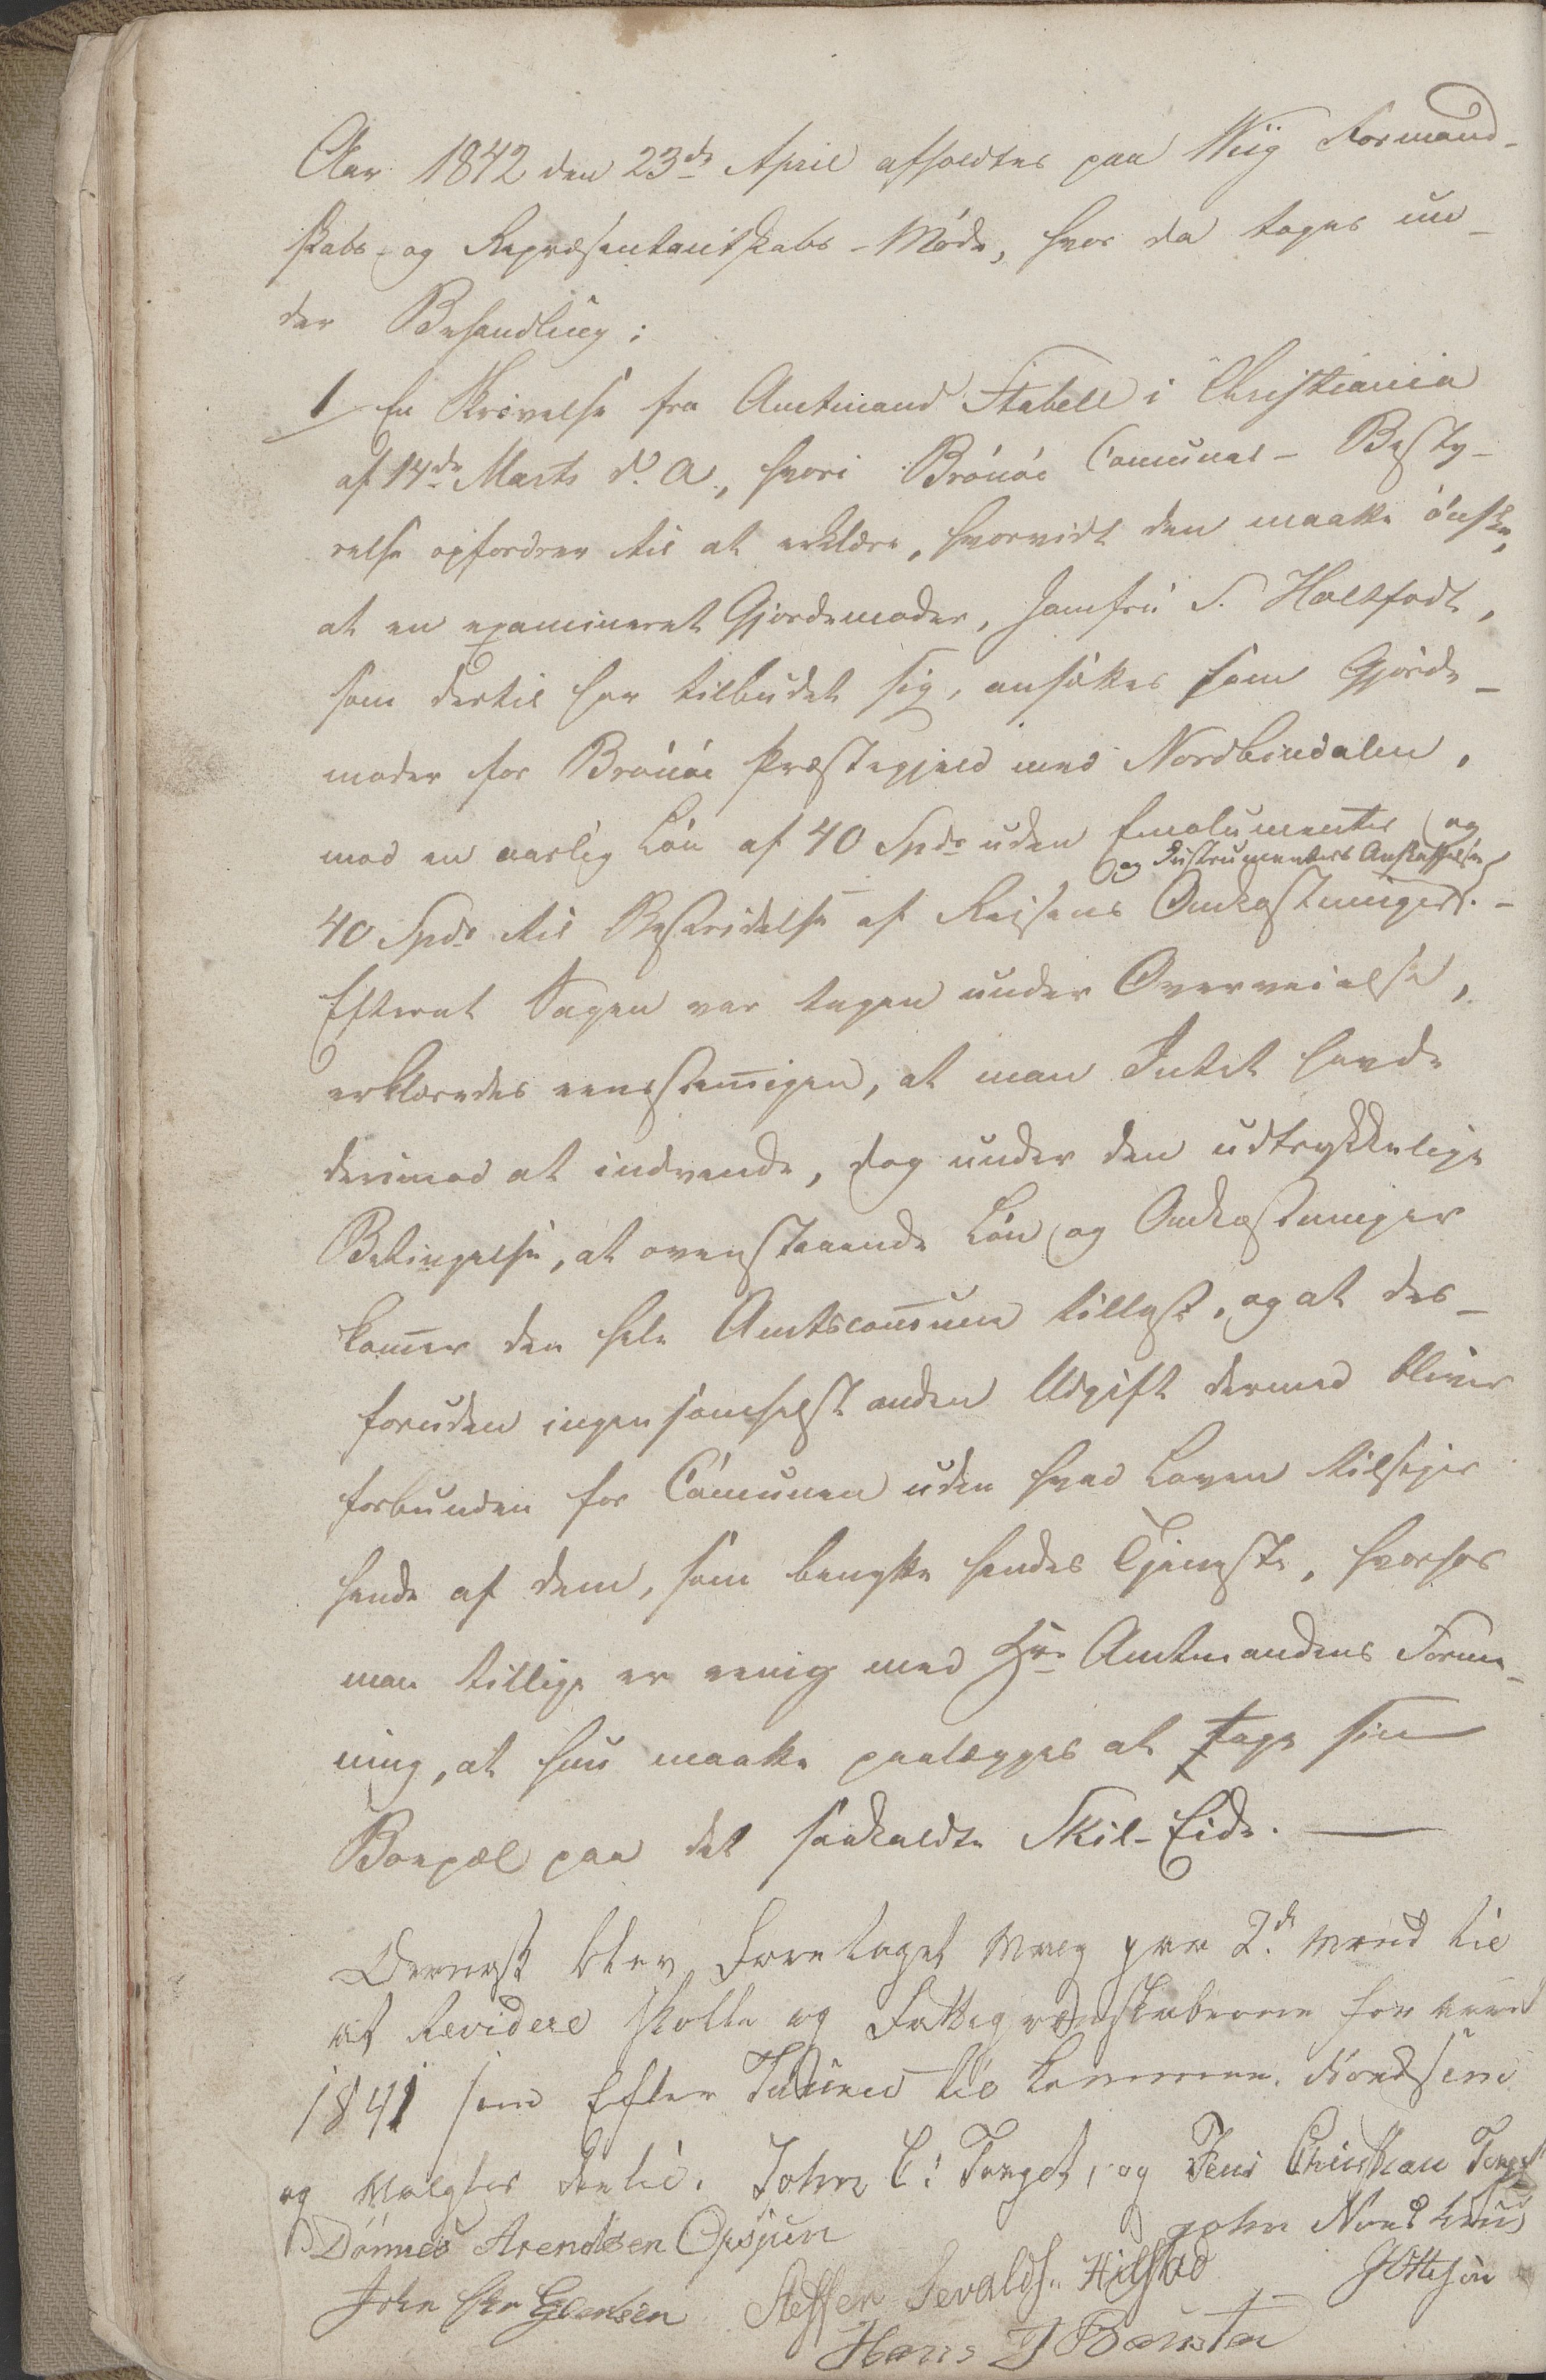 Aar 1842 den 23de April afholdtes paa Wiig Formand-
skabs- og Repræsentantskabs-Møde, hvor da toges un-
der Behandling:
1 En Skrivelse fra Amtmand Stabell i Christiania
af 14de Marts d. A., hvori Brönöe Comunal-Besty-
relse opfordres til at erklære, hvorvidt den maatte önske,
at en examineret Gjordemoder, Jomfru S. Holtfodt,
som dertil har tilbudet sig, ansættes som Gjorde-
moder for Brönöe Præstegjeld med Nordbindalen,
mod en aarlig Lön af 40 Spdr uden Emolumenter og
og Instrumenters Anskaffelse
40 Spdr til Bestridelse af Reisens Omkostninger. -
Efterat Sagen var tagen under Overveielse,
erklæredes eenstemigen, at man Intet havde
derimod at indvende, dog under den udtrykkelige
Betingelse, at ovenstaaende Lön og Omkostninger
komer den hele Amtscomune tillast, og at des-
foruden ingen somhelst anden Udgift dermed bliver
forbunden for Comunen uden hvad Loven tilsiger
hende af dem, som benytte hendes Tjeneste, hvorhos
man tillige er eenig med Hr. Amtmandens Forme-
ning, at hun maatte paalægges at tage sin
Boepæl paa det saakaldte Skil-Eide.
Dernæst blev Foretaget Valg paa 2de Mænd til
at Revidere Skolle og Fattigregnskaberne for aaret
1841 som Efter
og Valgtes dertil. John C: Torget, og Jens Christian Torget
Dönnes Arendtsen Opsjøen John Nordhuus
John Chr Steffen Sevalds. Hilstad JOttesen
Hans J